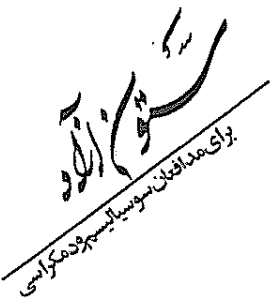 ستون آزاد
برای مدافعان سوسیالیسم و دمکراسی